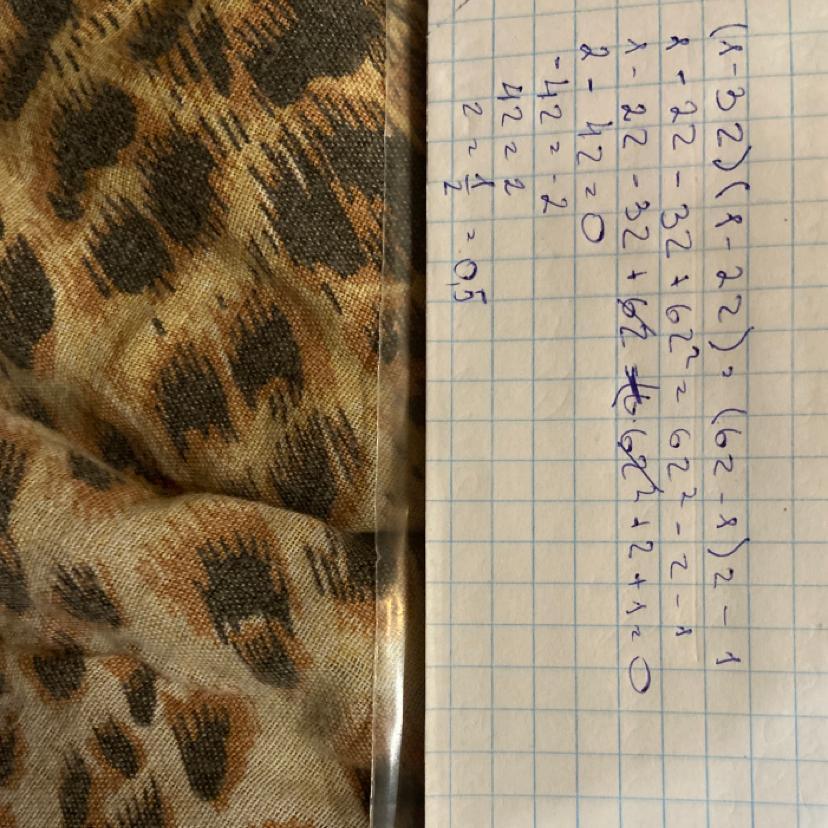 (1-3z)(1-2z) = (6z-1)z-1
1-2z-3z+6z² = 6z²-z-1
1-2z-3z+6z²-6z²+z+1=0
2-4z=0
-4z=-2
4z=2
z=1/2=0,5